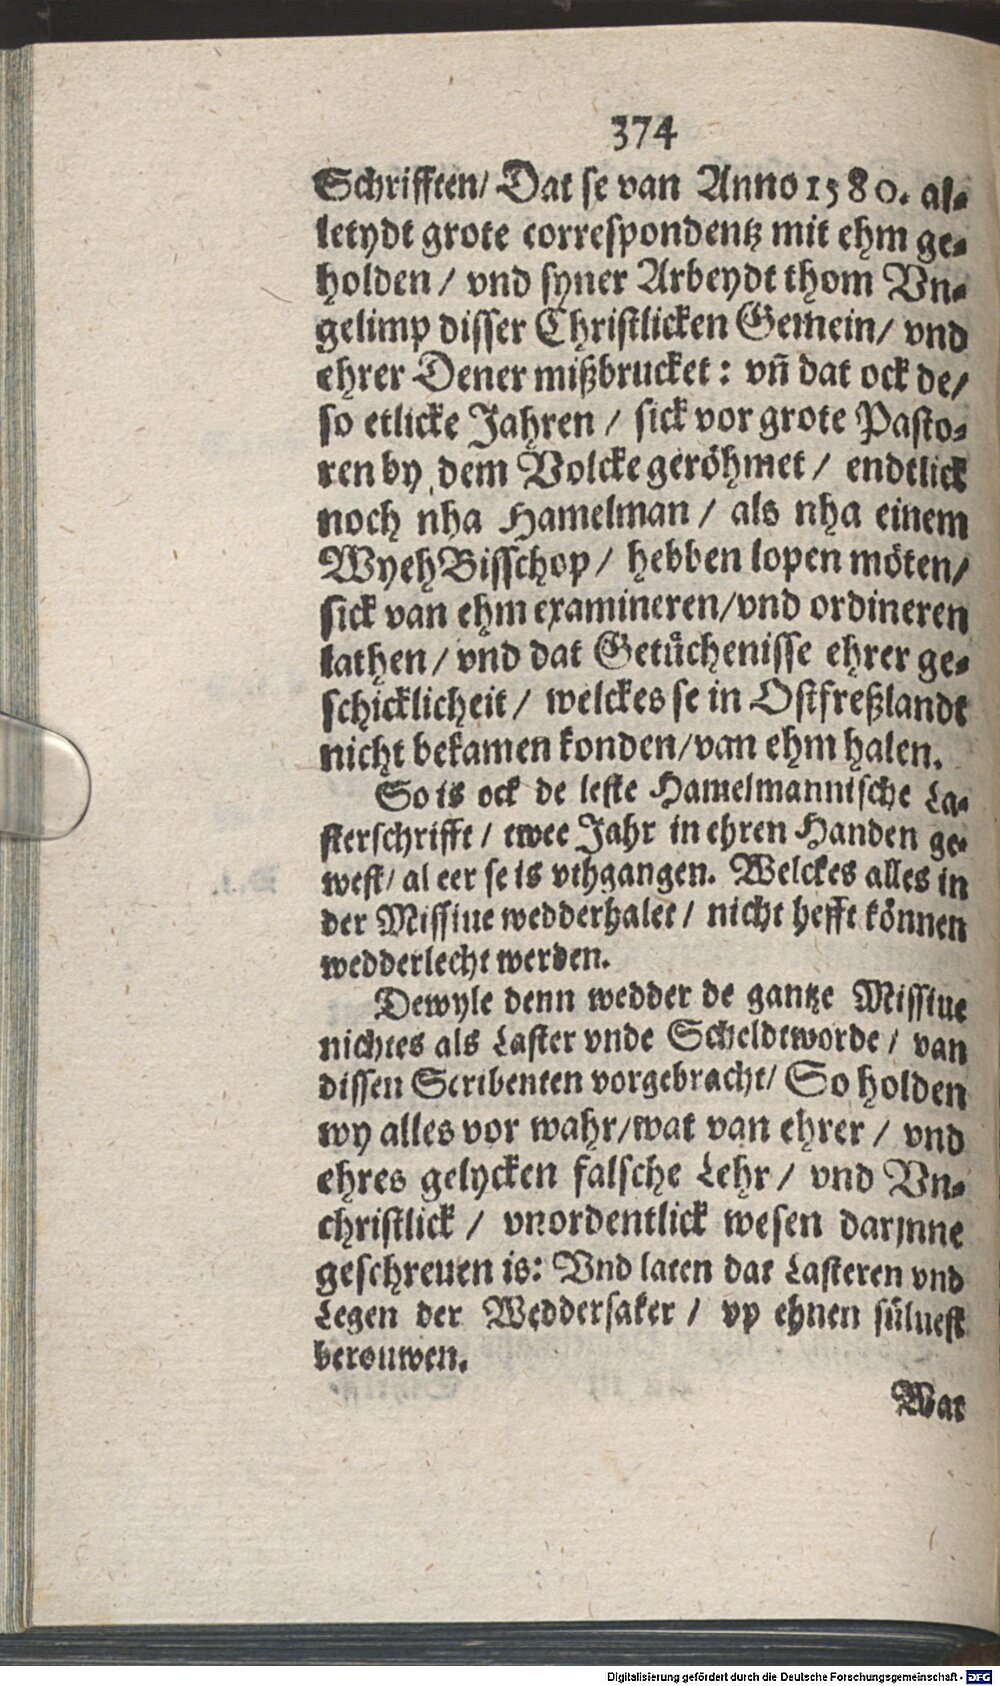 374
Schrifften/ Dat se van Anno 1580. al-
letydt grote correspondentz mit ehm ge-
holden / vnd syner Arbeydt thom Vn-
gelimp disser Christlicken Gemein/ vnd
ehrer Dener mißbrucket: vñ dat ock de/
so etlicke Jahren / sick vor grote Pasto-
ren by dem Volcke geröhmet / endtlick
noch nha Hamelman / als nha einem
WyehBisschop / hebben lopen möten/
sick van ehm examineren/vnd ordineren
lathen/ vnd dat Getüchenisse ehrer ge-
schicklicheit / welckes se in Ostfreßlandt
nicht bekamen konden/van ehm halen.
So is ock de leste Hamelmannische La-
sterschrifft / twee Jahr in ehren Handen ge-
west/ al eer se is vthgangen. Welckes alles in
der Missiue wedderhalet / nicht hefft können
wedderlecht werden.
Dewyle denn wedder de gantze Missiue
nichtes als Laster vnde Scheldtworde / van
dissen Scribenten vorgebracht/ So holden
wy alles vor wahr/wat van ehrer / vnd
ehres gelycken falsche Lehr / vnd Vn-
christlick / vnordentlick wesen darjnne
geschreuen is: Vnd laten dat Lasteren vnd
Legen der Weddersaker / vp ehnen süluest
berouwen.
Wat
Digitalisierung gefördert durch die Deutsche Forschungsgemeinschaft - DFG